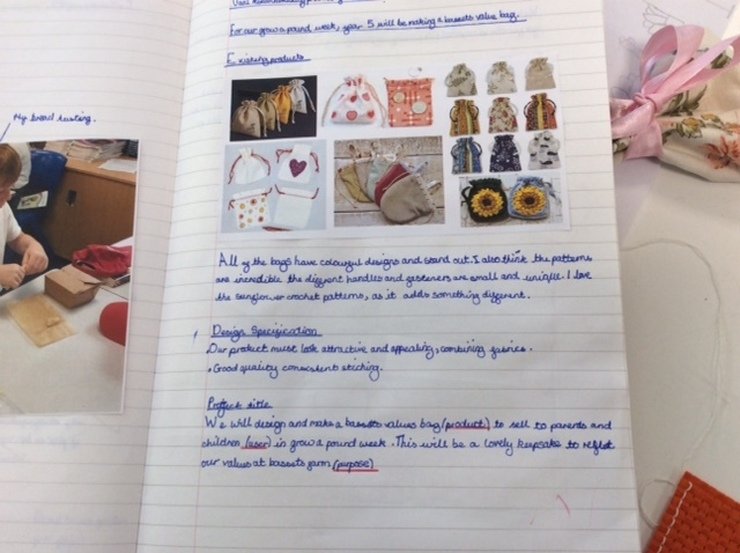 My bread tasting.
For our grow a pound week, year 5 will be making a bassets value bag.
Existing products
All of the bags have colourful designs and stand out. I also think the patterns
are incredible the different handles and fasteners are small and unique. I love
the sunflower crochet patterns, as it adds something different.
Design Specification
. Our product must look attractive and appealing, combining fabrics.
. Good quality consistent stiching.
Project title
We will design and make a bassets values bag (product) to sell to parents and
children (user) in grow a pound week. This will be a lovely keepsake to reflet
our values at bassets farm (purpose)